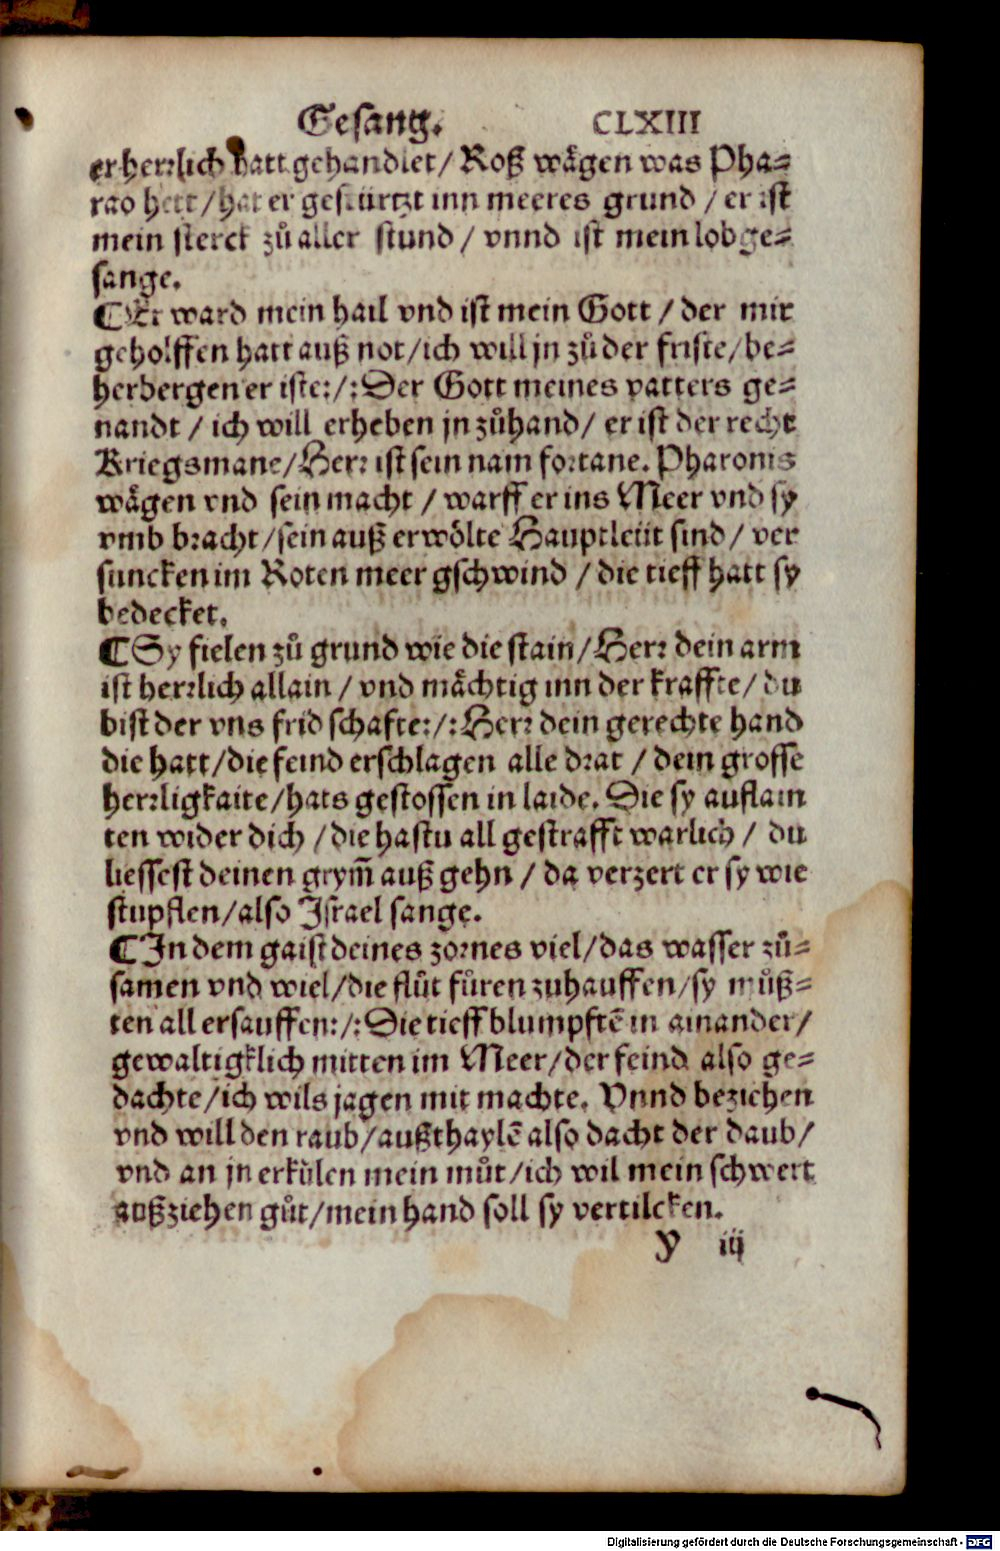 Gesang. CLXIII
er herꝛlich hatt gehandlet/ Roß wågen was Pha⸗
rao hett/hat er gestürtzt inn meeres grund / er ist
mein sterck zů aller stund/ vnnd ist mein lobge⸗
sange.
¶Er ward mein hail vnd ist mein Gott / der mir
geholffen hatt auß not/ich will jn zů der friste/be⸗
herbergen er iste:/:Der Gott meines vatters ge⸗
nandt / ich will erheben jn zůhand/ er ist der recht
Kriegsmane/Herꝛ ist sein nam foꝛtane. Pharonis
wågen vnd sein macht / warff er ins Meer vnd sy
vmb bꝛacht/sein auß erwölte Hauptleüt sind/ ver
suncken im Roten meer gschwind / die tieff hatt sy
bedecket.
¶Sy fielen zů grund wie die stain/Herꝛ dein arm
ist herꝛlich allain / vnd mächtig inn der kraffte/ du
bist der vns frid schafte:/:Herꝛ dein gerechte hand
die hatt/die feind erschlagen alle dꝛat / dein grosse
herꝛligkaite/hats gestossen in laide. Die sy auflain
ten wider dich /die hastu all gestrafft warlich / du
liessest deinen grym̃ auß gehn / da verzert er sy wie
stupflen/also Israel sange.
¶In dem gaist deines zoꝛnes viel/das wasser zů⸗
samen vnd wiel/die flůt fůren zuhauffen/sy můß⸗
ten all ersauffen:/:Die tieff blumpftẽ in ainander/
gewaltigklich mitten im Meer/der feind also ge⸗
dachte/ich wils jagen mit machte. Vnnd beziehen
vnd will den raub/außthaylẽ also dacht der daub/
vnd an jn erkůlen mein můt/ich wil mein schwert
außziehen gůt/mein hand soll sy vertilcken.
y iij
Digitalisierung gefördert durch die Deutsche Forschungsgemeinschaft - DFG